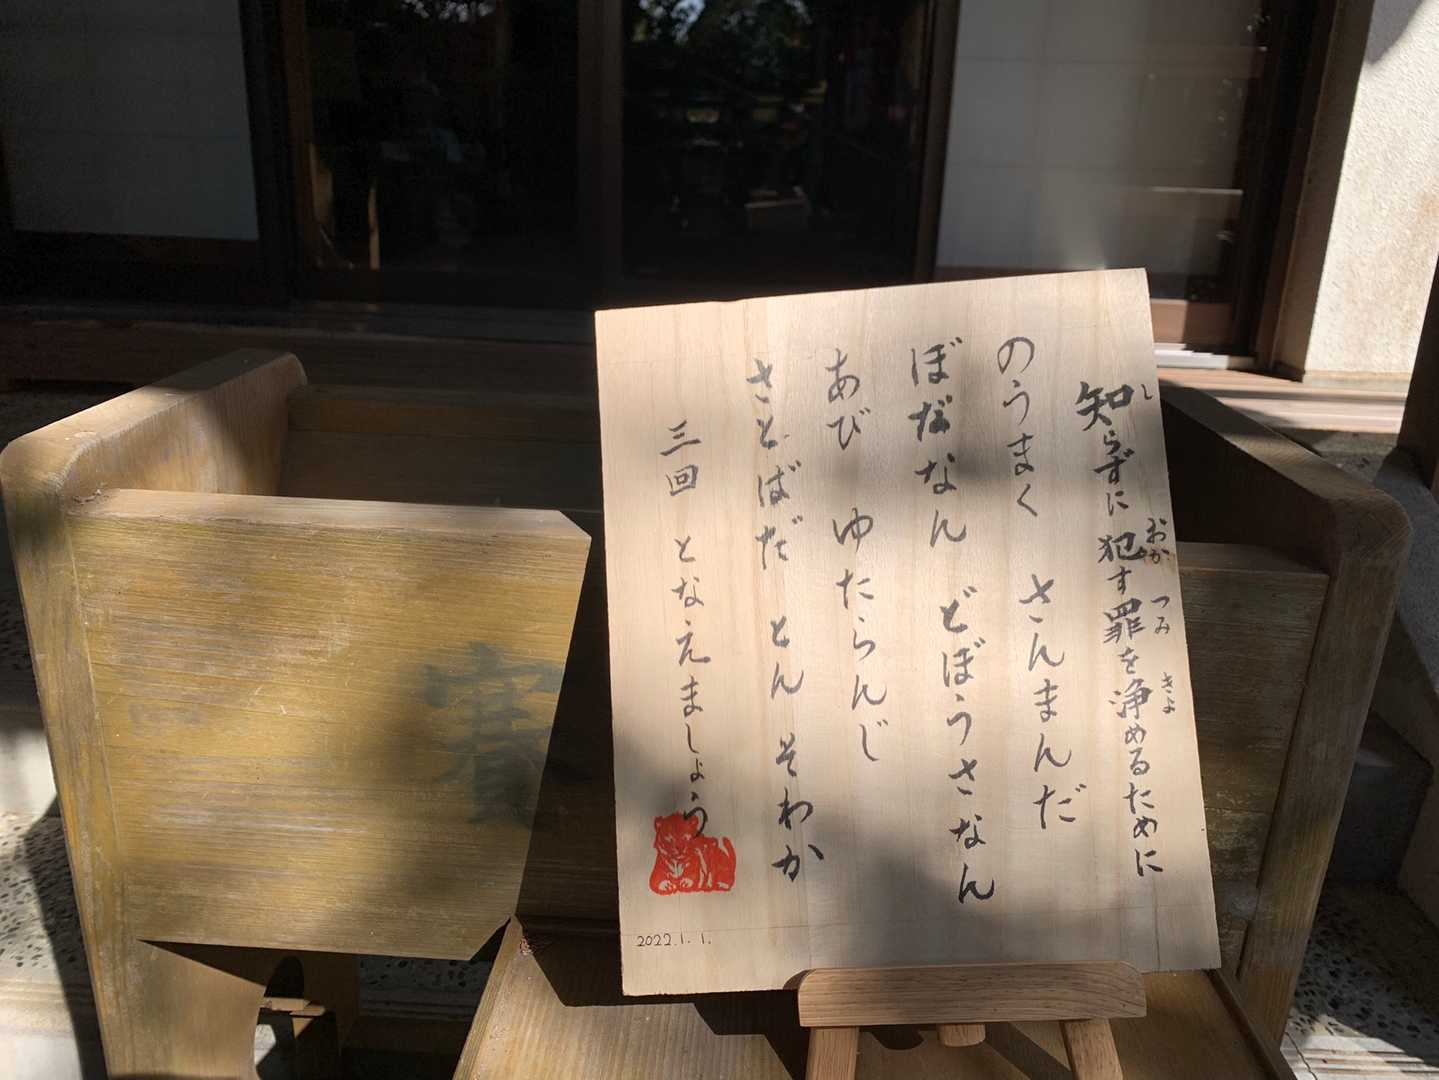 知らずに犯す罪を浄めるために
し おか つみ きよ
のうまく さんまんだ
ぼだなん どぼうさなん
あび ゆたらんじ
さとばだ とん そわか
三回 となえましょう
2022.1.1.